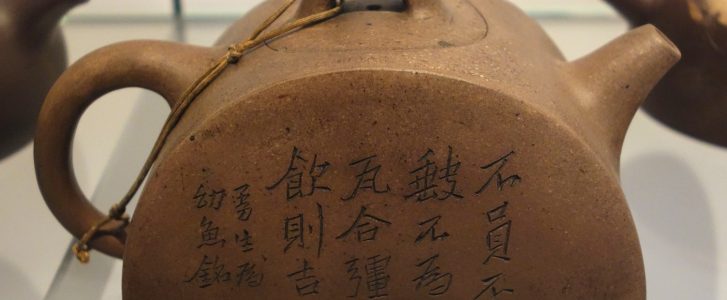 不員不
不為
瓦合彊
飲則吉
曼生為
幼魚銘